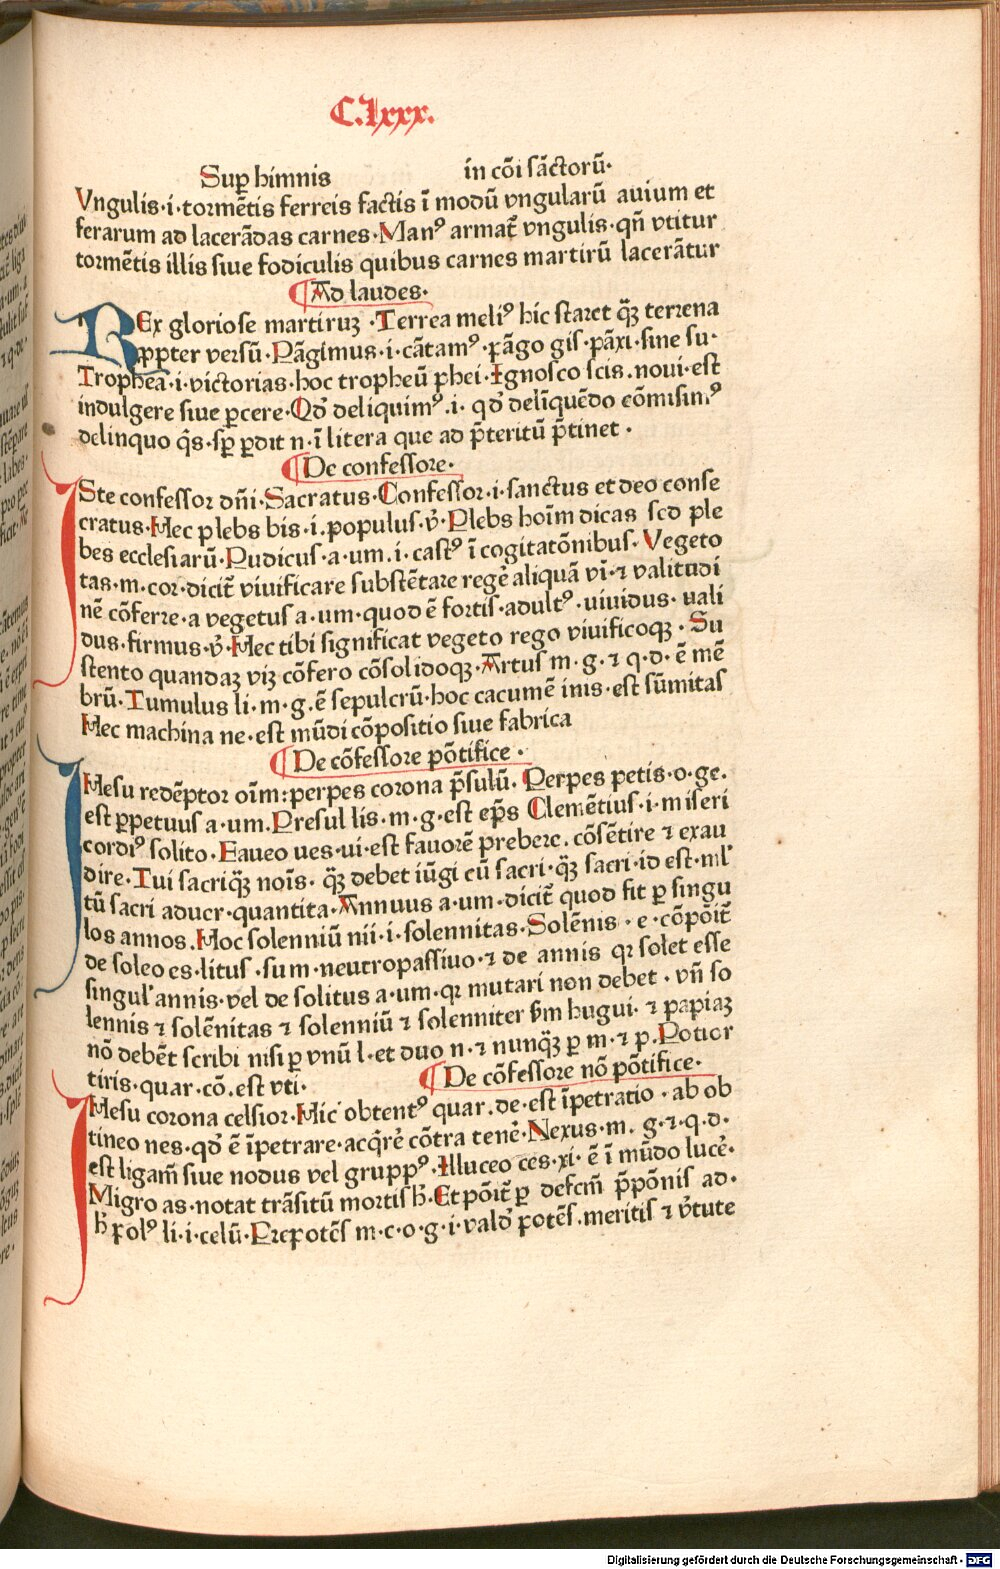 C.lxxx.
Suꝑ himnis in cōi sāctorū·
Vngulis·i·tormētis ferreis factis ī modū vngularū auium et
ferarum ad lacerādas carnes·Manꝰ armat̄ vngulis·qn̄ vtitur
tormētis illis siue fodiculis quibus carnes martirū lacerātur
¶Ad laudes·
REx gloriose martiruꝫ·Terrea meliꝰ hic staret qꝫ̄ terrena
ꝓpter versū·Pāgimus·i·cātamꝰ·pāgo gis·pāxi·sine su·
Trophea·i·victorias·hoc tropheū phei·Ignosco scis.noui·est
indulgere siue ꝑcere·Qd̓ deliquimꝰ.i·qd̓ deliq̄uēdo cōmisimꝰ
delinquo q̄s·sꝑ ꝑdit n·ī litera que ad p̄teritū ꝑtinet·
¶De confessore·
ISte confessor dn̄i·Sacratus·Confessor·i·sanctus et deo conse
cratus·Hec plebs bis·i.populus·v̓·Plebs hoīm dicas sed ple
bes ecclesiarū·Pudicus·a·um.i·castꝰ ī cogitatōnibus·Vegeto
tas·m·cor·dicit̄ viuificare substētare regē aliquā vī·⁊ valitudi
nē cōferre·a vegetus a·um·quod ē fortis·adultꝰ·uiuidus·uali
dus·firmus·v̓·Hec tibi significat vegeto rego viuificoqꝫ·Su
stento quandaꝫ viꝫ cōfero cōsolidoqꝫ·Artus m·g·⁊ q·d·ē mē
brū·Tumulus li·m·g·ē sepulcrū·hoc cacumē inis·est sūmitas
Hec machina ne·est mūdi cōpositio siue fabrica
¶De cōfessore pōtifice·
IHesu redēptor oīm:perpes corona p̄sulū·Perpes petis·o·ge.
est ꝑpetuus a·um.Presul lis·m·g·est ep̄s Clemētius·i·miseri
cordiꝰ solito·Faueo ues·ui·est fauorē prebere.cōsētire ⁊ exau
dire·Tui sacriqꝫ̄ noīs·qꝫ̄ debet iūgi cū sacri·qꝫ̄ sacri·id est·ml̓
tū sacri aduer·quantita·Annuus a·um·dicit̄ quod fit ꝑ singu
los annos.Hoc solenniū nii·i·solennitas·Solēnis·e·cōpōit̄
de soleo es·litus·sum·neutropassiuo·⁊ de annis qꝛ solet esse
singul̓ annis·vel de solitus a·um·qꝛ mutari non debet·vn̄ so
lennis ⁊ solēnitas ⁊ solenniū ⁊ solenniter ẜm hugui·⁊ papiaꝫ
nō debēt scribi nisi ꝑ vnū l·et duo n·⁊ nunqꝫ̄ ꝑ m·⁊ p.Potior
tiris·quar·cō.est vti· ¶De cōfessore nō pōtifice·
IHesu corona celsior·Hic obtentꝰ quar.de·est īpetratio·ab ob
tineo nes·qd̓ ē īpetrare·acq̄re̓ cōtra tene̓·Nexus·m.g·⁊·q·d·
est ligam̄ siue nodus vel gruppꝰ·Illuceo ces·xi·ē ī mūdo luce̓·
Migro as·notat trāsitū mortis h̓·Et pōit̄ ꝑ defcm̄ p̄pōnis ad·
h̓ polꝰ li·i·celū·Prepotēs m·c·o·g·i·vald̓ potēs·meritis ⁊ v̓tute
Digitalisierung gefördert durch die Deutsche Forschungsgemeinschaft - DFG